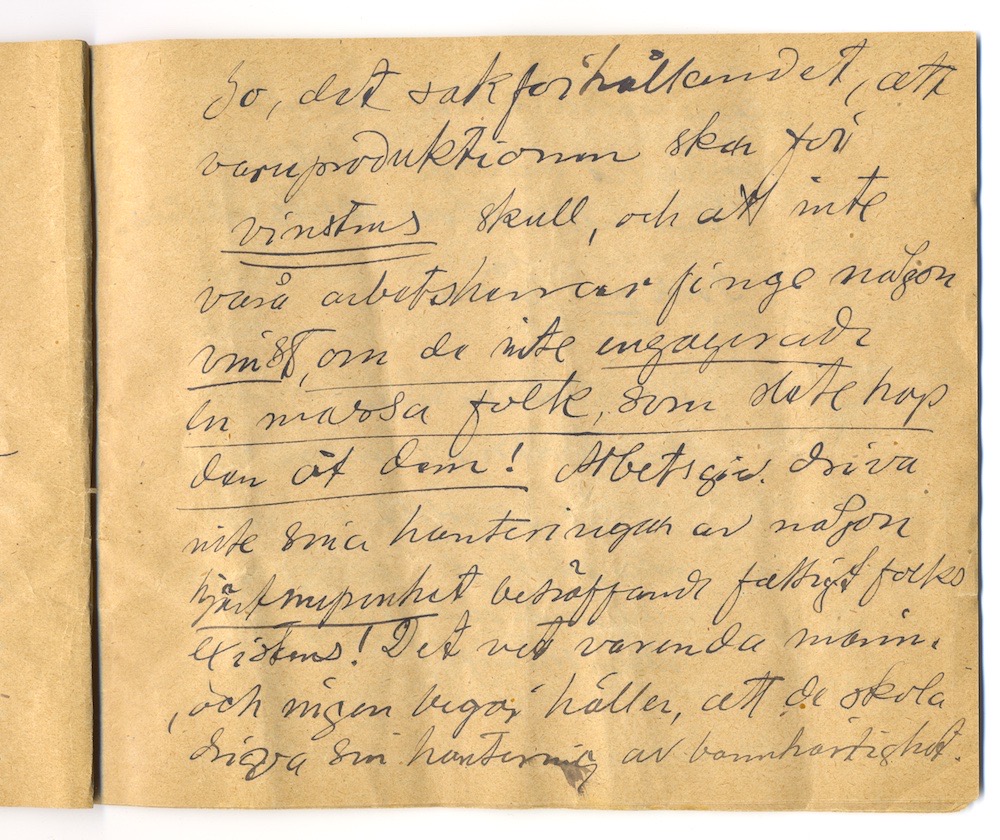 Jo, det sakförhållandet, att
varuproduktionen sker för
vinstens skull, och att inte
våra arbetsherrar finge någon
vinst, om de inte engagerade
en massa folk, som slete hop
den åt dem! Arbetsgiv. driva
inte sina hanteringar av någon
hjärtnupenhet beträffande fattigt folks
existens! Det vet varenda männ.
, och ingen begär håller, att de skola
driva sin hantering av barmhärtighet.